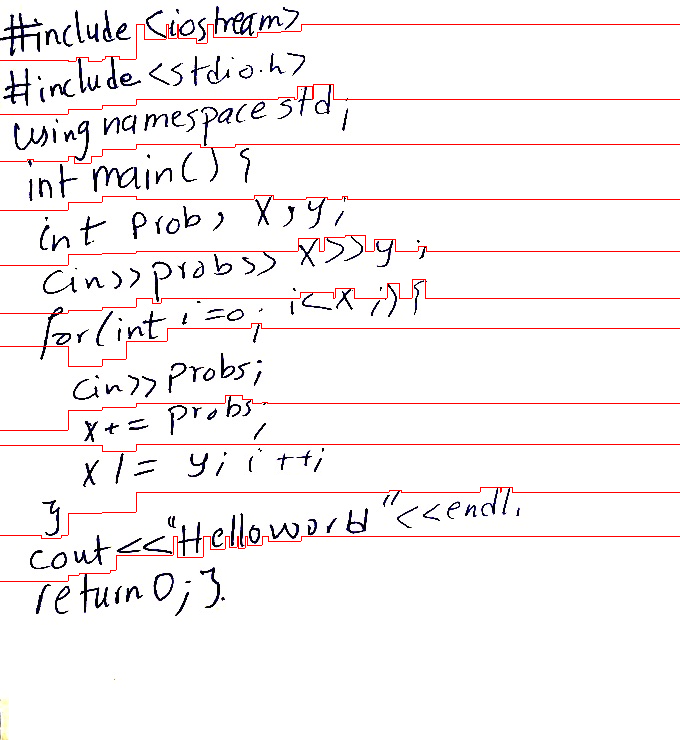 #include <iostream>
#include <stdio.h>
using namespace std;
int main() {
int prob, x, y;
cin>>probs>> x>>y;
for(int i=0; i<x;) {
cin>> probs;
x+= probs;
x /= y; i++;
}
cout<<"Hello world"<<endl.
return 0; }.